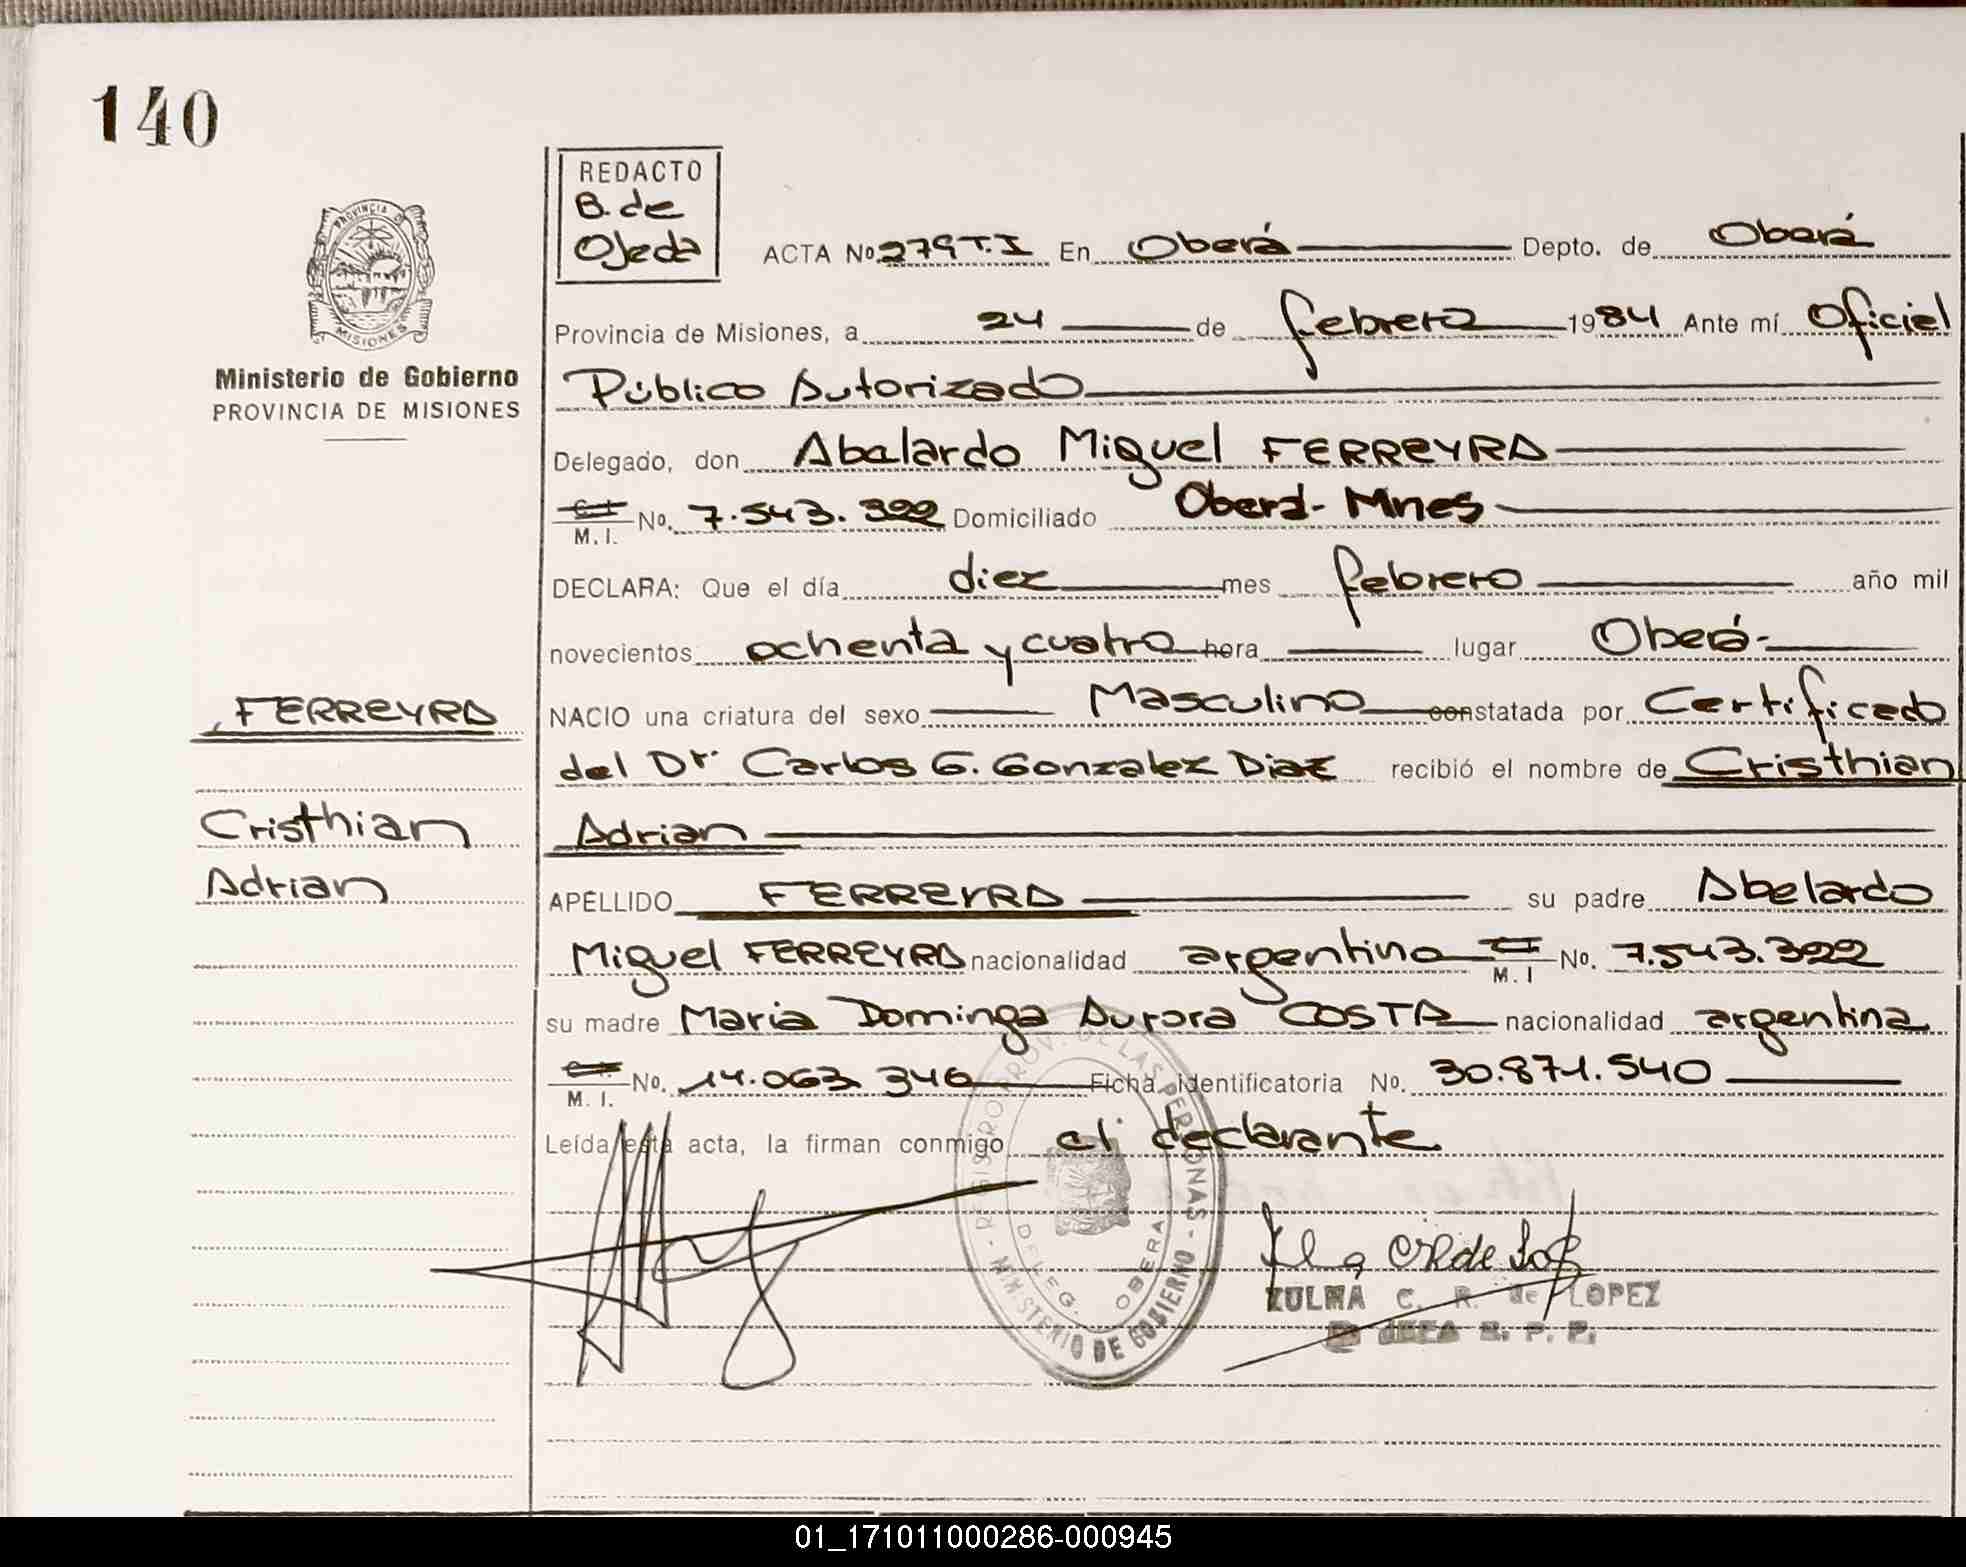 140
REDACTO
B. de
Ojeda
ACTA No. 279 T.I En Oberá Depto. de Oberá
Provincia de Misiones, a 24 de febrero 1984 Ante mí Oficial
Público Autorizado
Delegado, don Abelardo Miguel FERREYRA
M. I. No. 7.543.322 Domiciliado Oberá - Mnes
DECLARA: Que el día diez mes febrero año mil
novecientos ochenta y cuatro hora lugar Oberá-
NACIO una criatura del sexo Masculino constatada por Certificado
del Dr Carlos G. Gonzalez Diaz recibió el nombre de Cristhian
Adrian
APELLIDO FERREYRA su padre Abelardo
Miguel FERREYRA nacionalidad argentino M. I No. 7.543.322
su madre Maria Dominga Aurora COSTA nacionalidad argentina
M. I. No. 14.063.346 Ficha identificatoria No. 30.871.540
Leída esta acta, la firman conmigo el declarante
PROVINCIA DE
MISIONES
Ministerio de Gobierno
PROVINCIA DE MISIONES
FERREYRA
Cristhian
Adrian
REGISTRO PROV. DE LAS PERSONAS - MINISTERIO DE GOBIERNO -
DELEG. OBERA
ZULMA C. R. de LOPEZ
JEFA R. P. P.
01_171011000286-000945